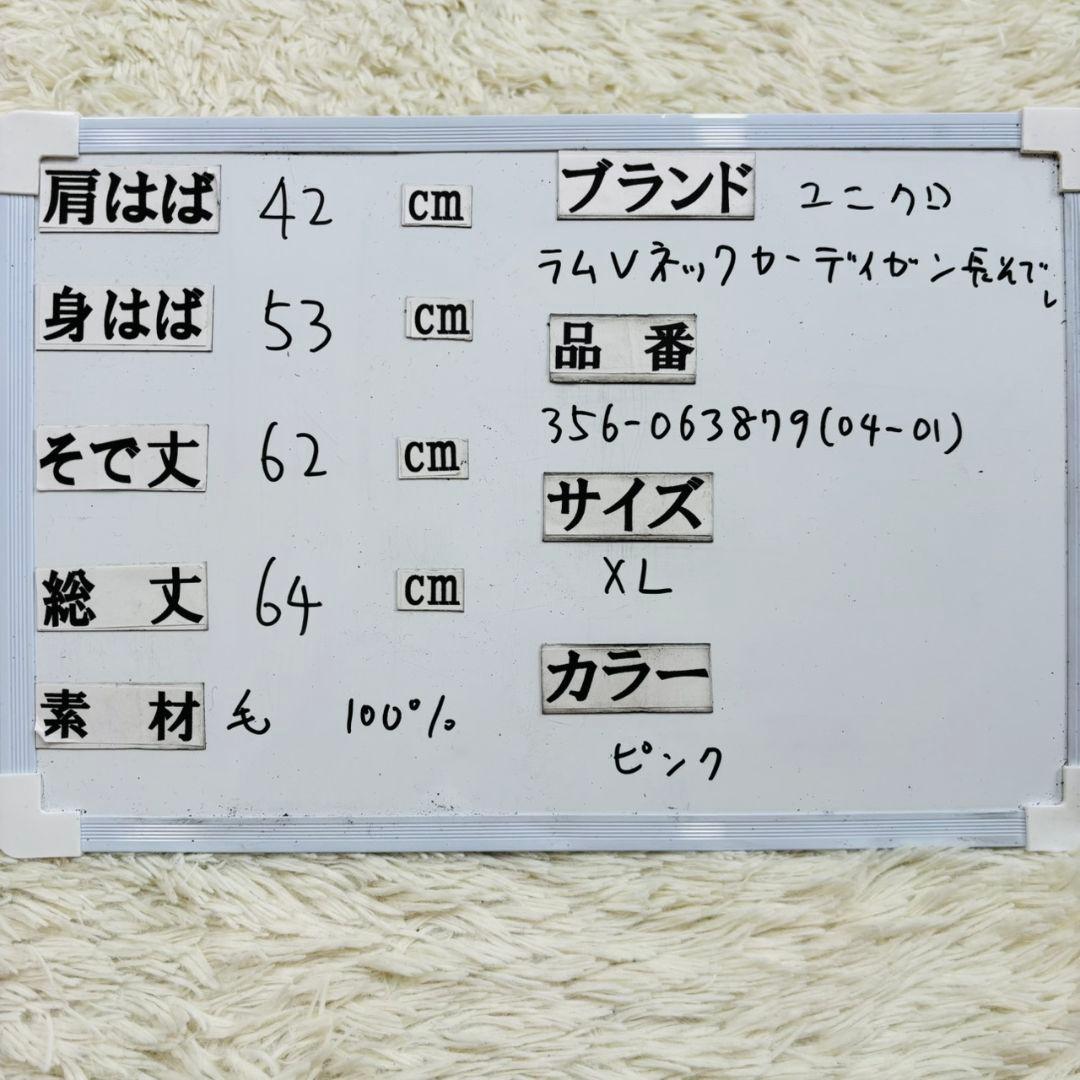 肩はば 42 cm
身はば 53 cm
そで丈 62 cm
総丈 64 cm
素材 毛 100%
ブランド ユニクロ
ラムVネックカーディガン長そで
品番
356-063879(04-01)
サイズ
XL
カラー
ピンク